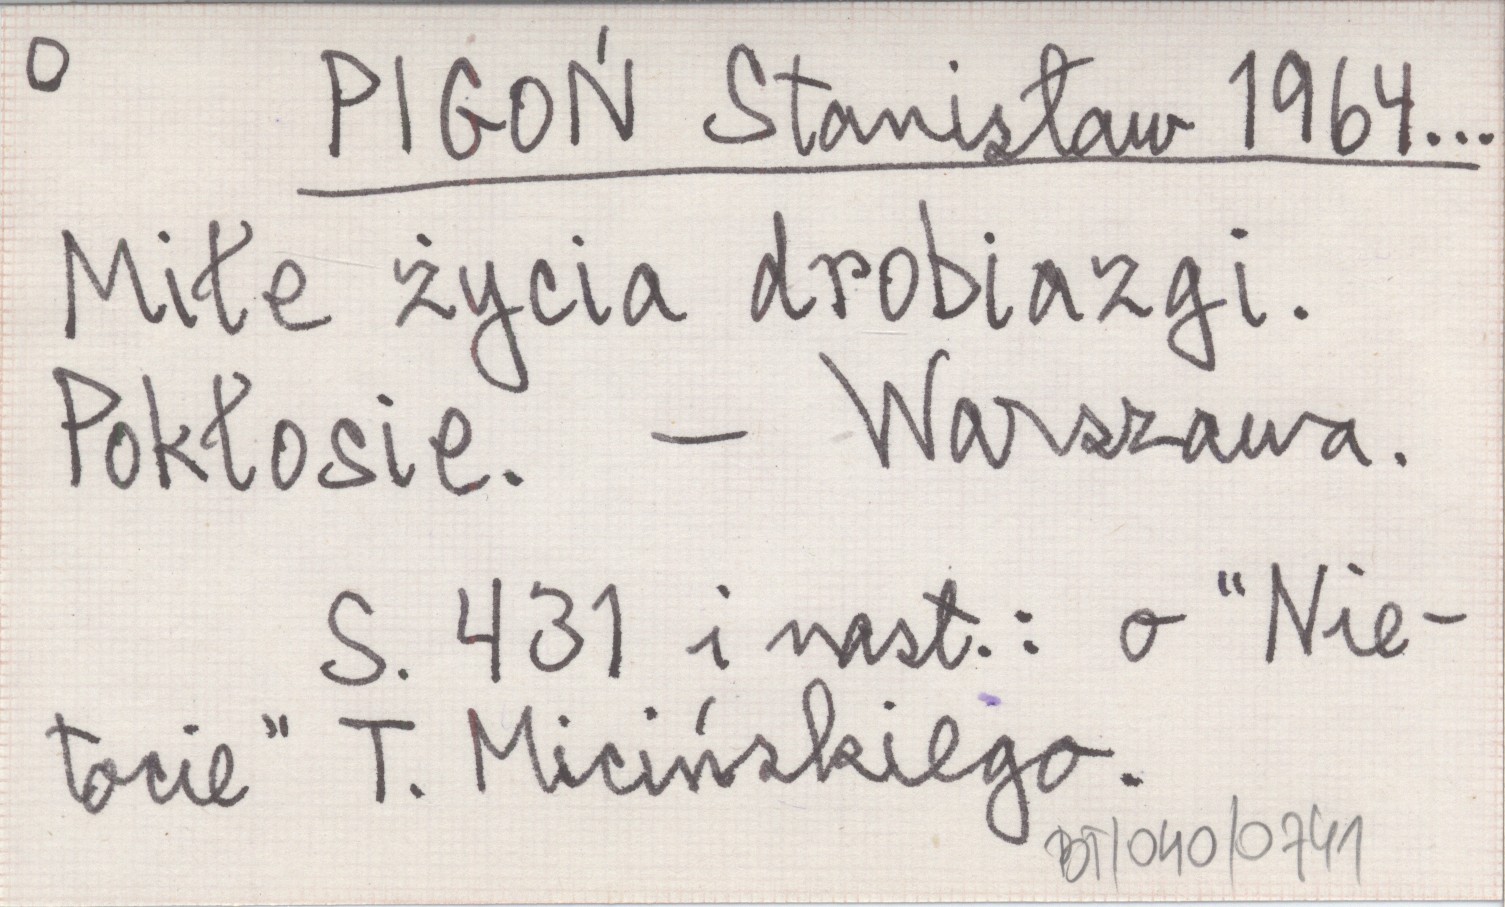 O PIGOŃ Stanisław 1964...
Miłe życia drobiazgi.
Pokłosie. — Warszawa.
S. 431 i nast.: o "Nie-
tocie" T. Micińskiego.
BT/040/0741